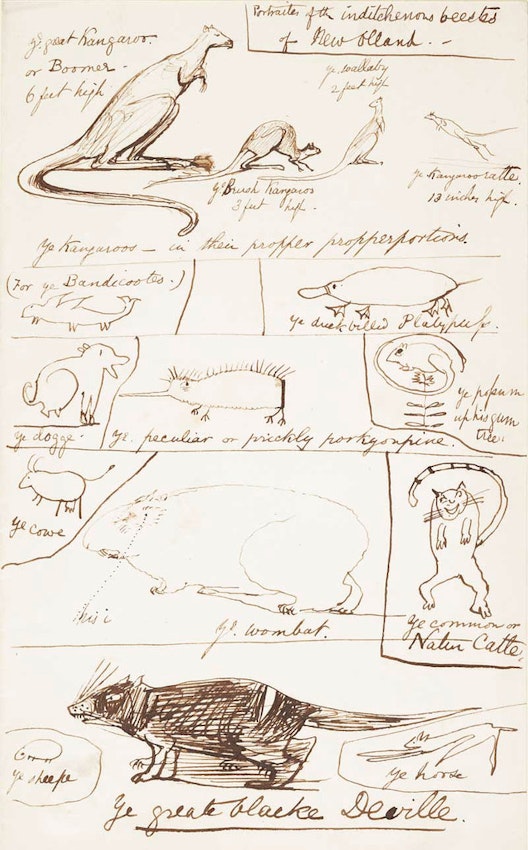 Portraites of th inditchenous beestes
of New Olland. -
ye. great Kangaroo.
or Boomer -
6 feet high
ye. wallaby
2 feet high
ye Brush Kangaroo
3 feet high.
ye Kangarooratte
13 inches high.
Ye Kangaroos — in their propper propperportions.
(For ye Bandicootes.)
Ye duckbilled Platypuss.
Ye dogge -
Ye. peculiar or prickly porkyonpine.
ye possum
up his gum
tree.
Ye cowe
this i
Ye. wombat.
Ye common or
Natur Catte.
Ye sheepe
Ye horse
Ye greate blacke Deville.